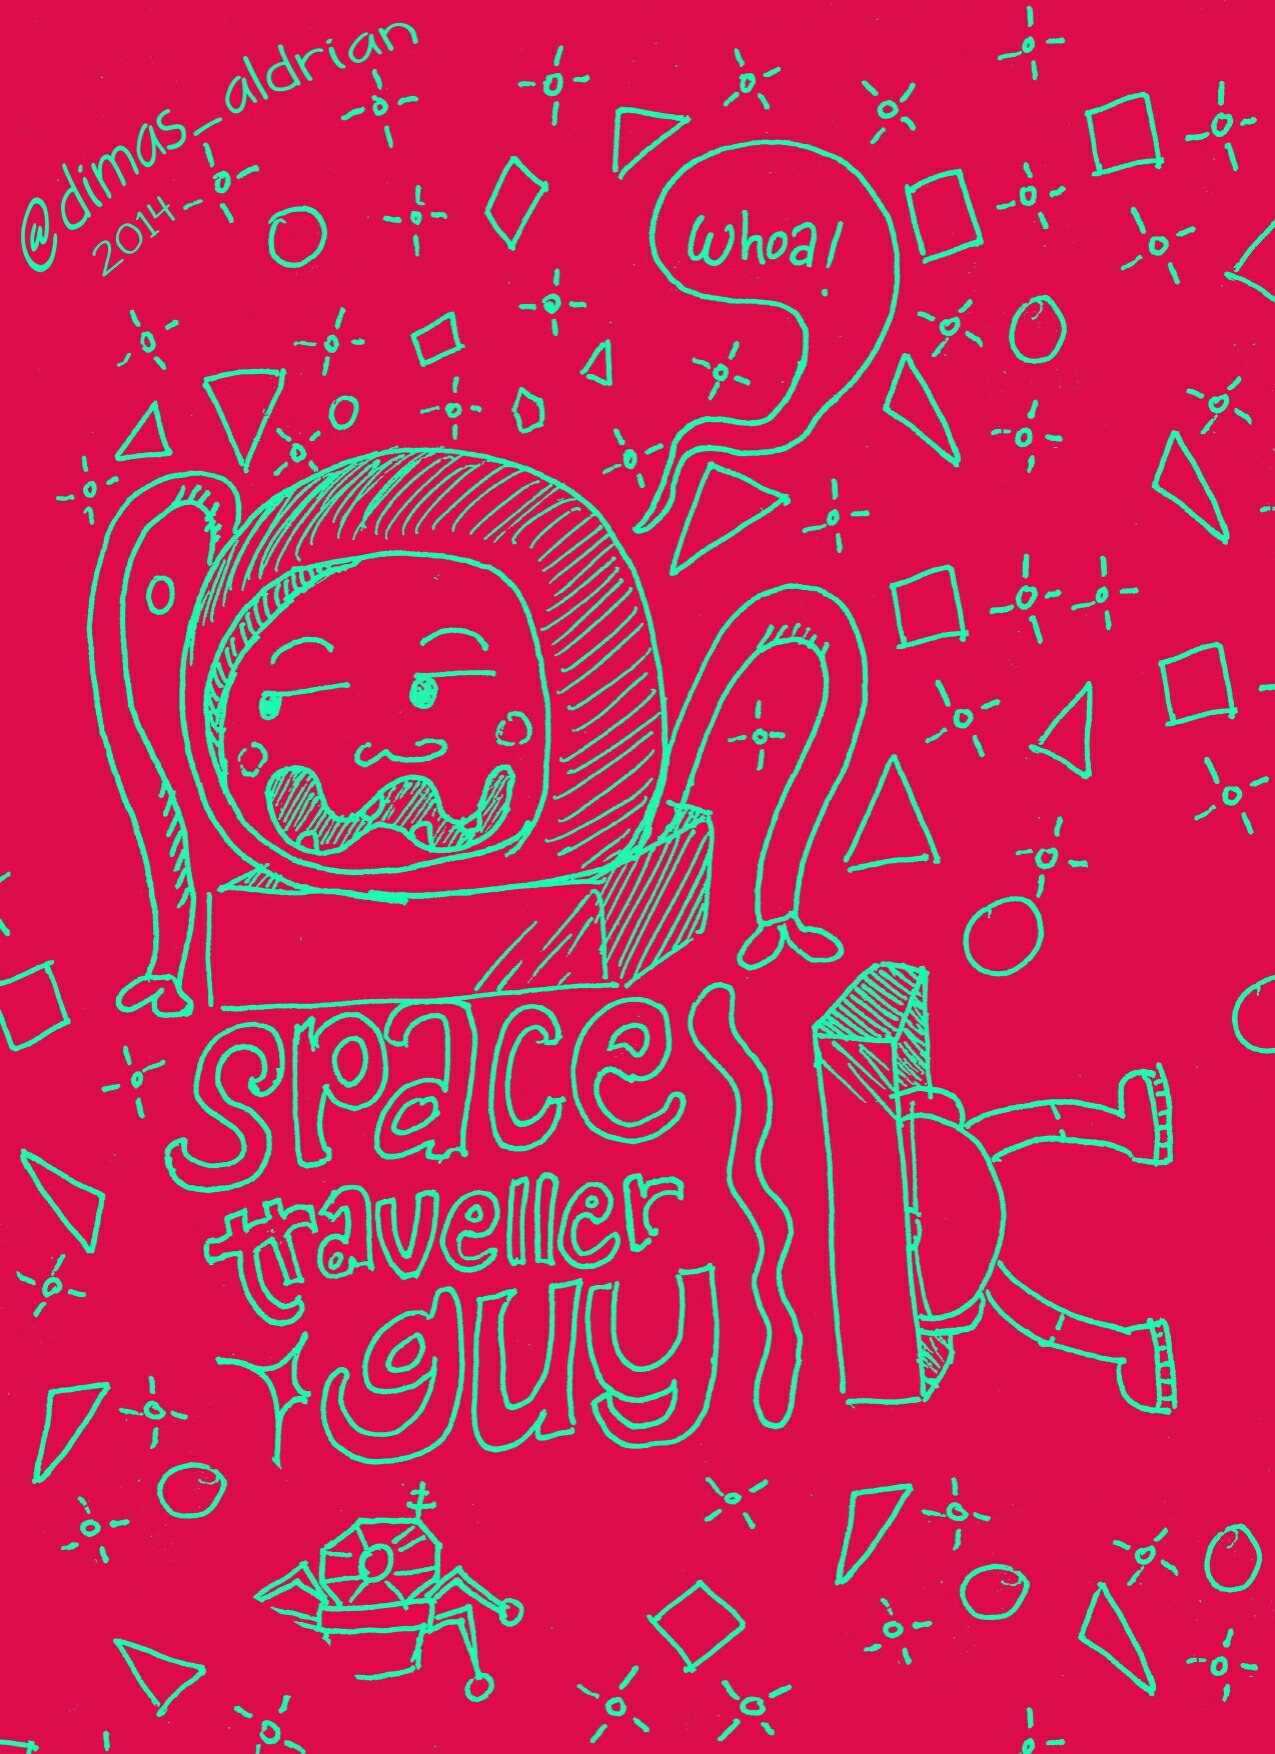 @dimas_aldrian
2014
Whoa!
space
traveller
guy